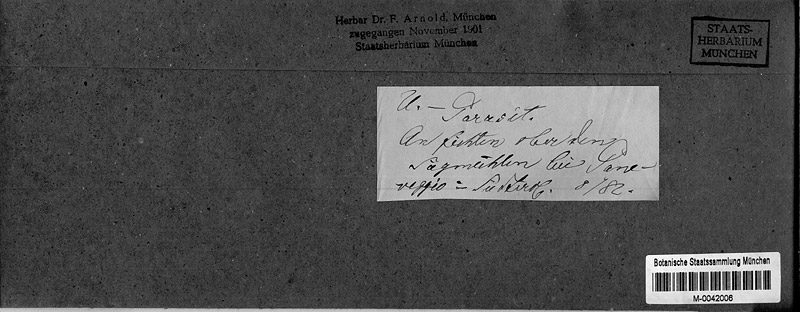 Herbar Dr. F. Arnold, München
zugegangen November 1901
Staatsherbarium München
STAATS-
HERBARIUM
MÜNCHEN
U. – Parasit.
An Fichten ober den
Sägmühlen bei Pane-
veggio = Südtirol. 8/82.
Botanische Staatssammlung München
M-0042006